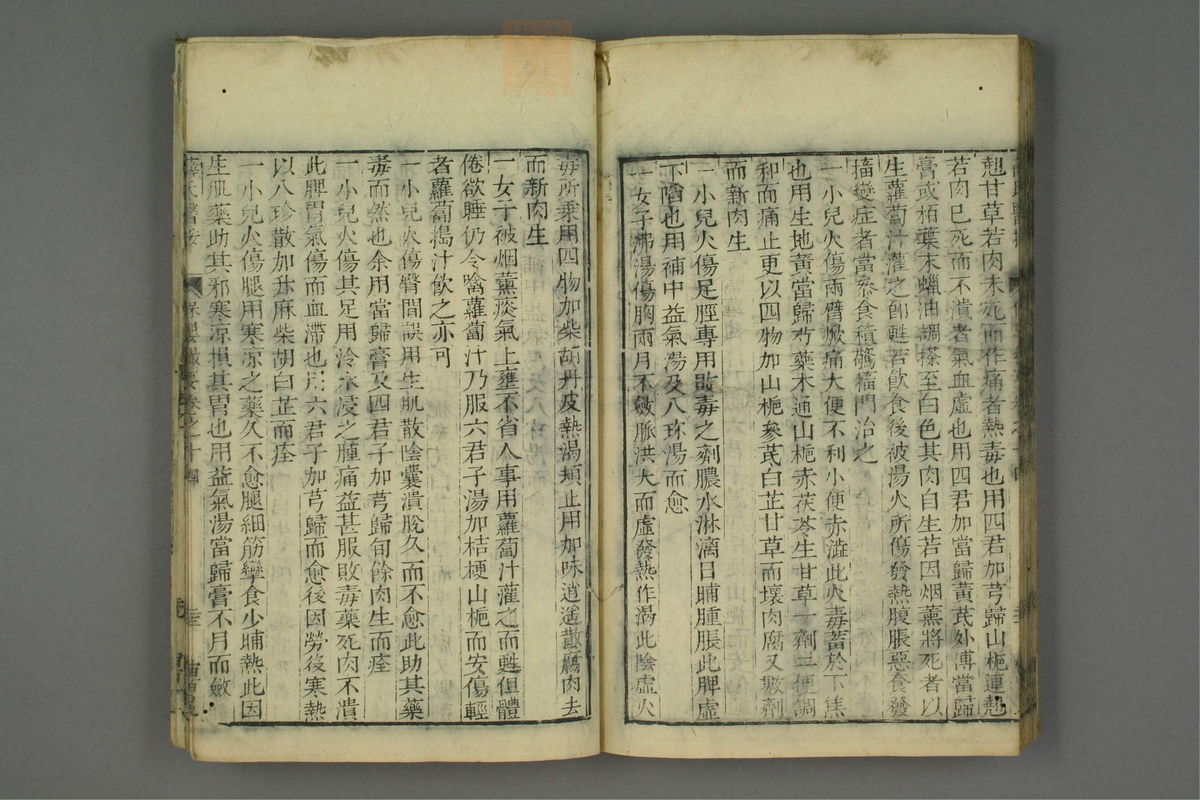 翹甘草若肉未死而作痛者熱毒也用四君加芎歸山梔連翹
若肉已死而不潰者氣血虛也用四君加當歸黃芪外傅當歸
膏或栢葉末蠟油調搽至白色其肉自生若因烟薰將死者以
生蘿蔔汁灌之卽甦若飲食後被湯火所傷發熱腹脹惡食發
搐變症者當參食積驚搐門治之
一小兒火傷兩臂焮痛大便不利小便赤澁此火毒蓄於下焦
也用生地黃當歸芍藥木通山梔赤茯苓生甘草一劑二便調
和而痛止更以四物加山梔參芪白芷甘草而壞肉腐又數劑
而新肉生
一小兒火傷足脛專用敗毒之劑膿水淋漓日晡腫脹此脾虛
下陷也用補中益氣湯及八珎湯而愈
一女子沸湯傷胸兩月不斂脈洪大而虛發熱作渴此陰虛火
毒所乗用四物加柴胡丹皮熱渴頓止用加味逍遥散瘍肉去
而新肉生
一女子被烟薰痰氣上壅不省人事用蘿蔔汁灌之而甦但體
倦欲睡仍令噙蘿蔔汁乃服六君子湯加桔梗山梔而安傷輕
者蘿蔔搗汁飲之亦可
一小兒火傷臀間誤用生肌散陰囊潰脫久而不愈此助其藥
毒而然也余用當歸膏及四君子加芎歸旬餘肉生而痊
一小兒火傷其足用冷水浸之腫痛益甚服敗毒藥死肉不潰
此脾胃氣傷而血滯也用六君子加芎歸而愈後因勞後寒熱
以八珍散加升麻柴胡白芷而痊
一小兒火傷腿用寒凉之藥久不愈腿細筋攣食少晡熱此因
生肌藥助其邪寒凉損其胃也用益氣湯當歸膏不月而斂
薛氏醫按
保嬰撮要卷之十四